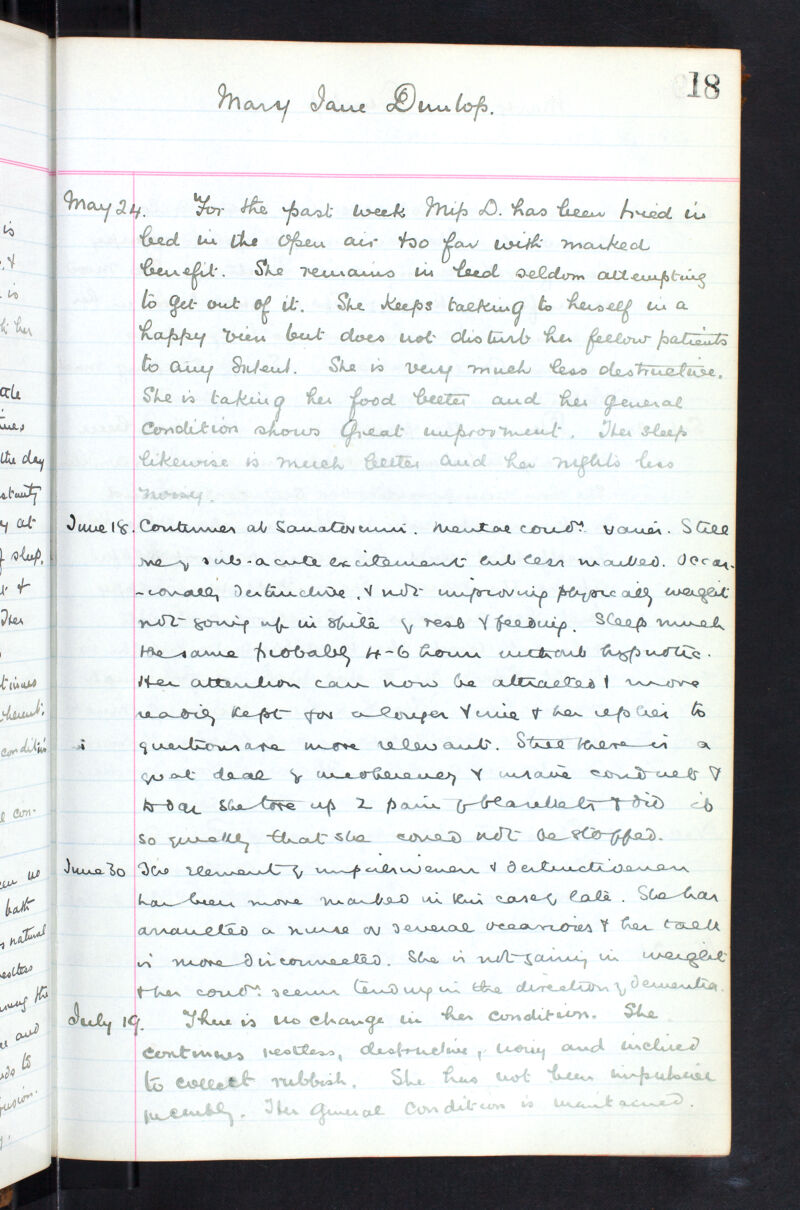 18
Mary Jane Dunlop.
May 24. For the past week Miss D. has been tried in
bed in the open air & so far with marked
benefit. She remains in bed seldom attempting
to get out of it. She keeps talking to herself in a
happy vein but does not disturb her fellow patients
to any extent. She is very much less destructive.
She is taking her food better and her general
condition shows great improvment. Her sleep
likewise is much better and her nights less
noisy.
June 18. Continues at Sanatorium. Mental condn. varies. Still
one of sub-acute excitement but less marked. Occas-
-ionally destructive, & not improving physically weight
not going up in spite of rest & feeding. Sleep much
the same probably 4-6 hours without hypnotic.
Her attention can now be attracted & more
readily kept for a longer time & her replies to
questions are more relevant. Still there is a
great deal of incoherency & insane conduct &
to day she tore up 2 pair of blankets & did it
so quickly that she could not be stopped.
June 30 The element of impulsiveness & destructiveness
has been more marked in this case of late. She has
assaulted a nurse on several occasions & her talk
is more disconnected. She is not gaining in weight
& her condn. seems tending in the direction of Dementia.
July 19. There is no change in her condition. She
continues restless, destructive, noisy and inclined
to collect rubbish. She has not been impulsive
recently. Her general condition is maintained.
is
is
her
the day
at
sleep.
&
Her
condition
con-
no
bath
natural
restless
the
and
to